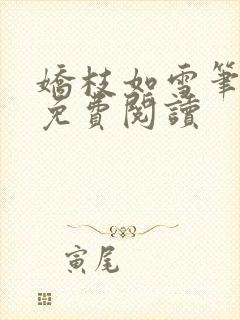 嬌枝如雪筆
免費閱讀
寅尾